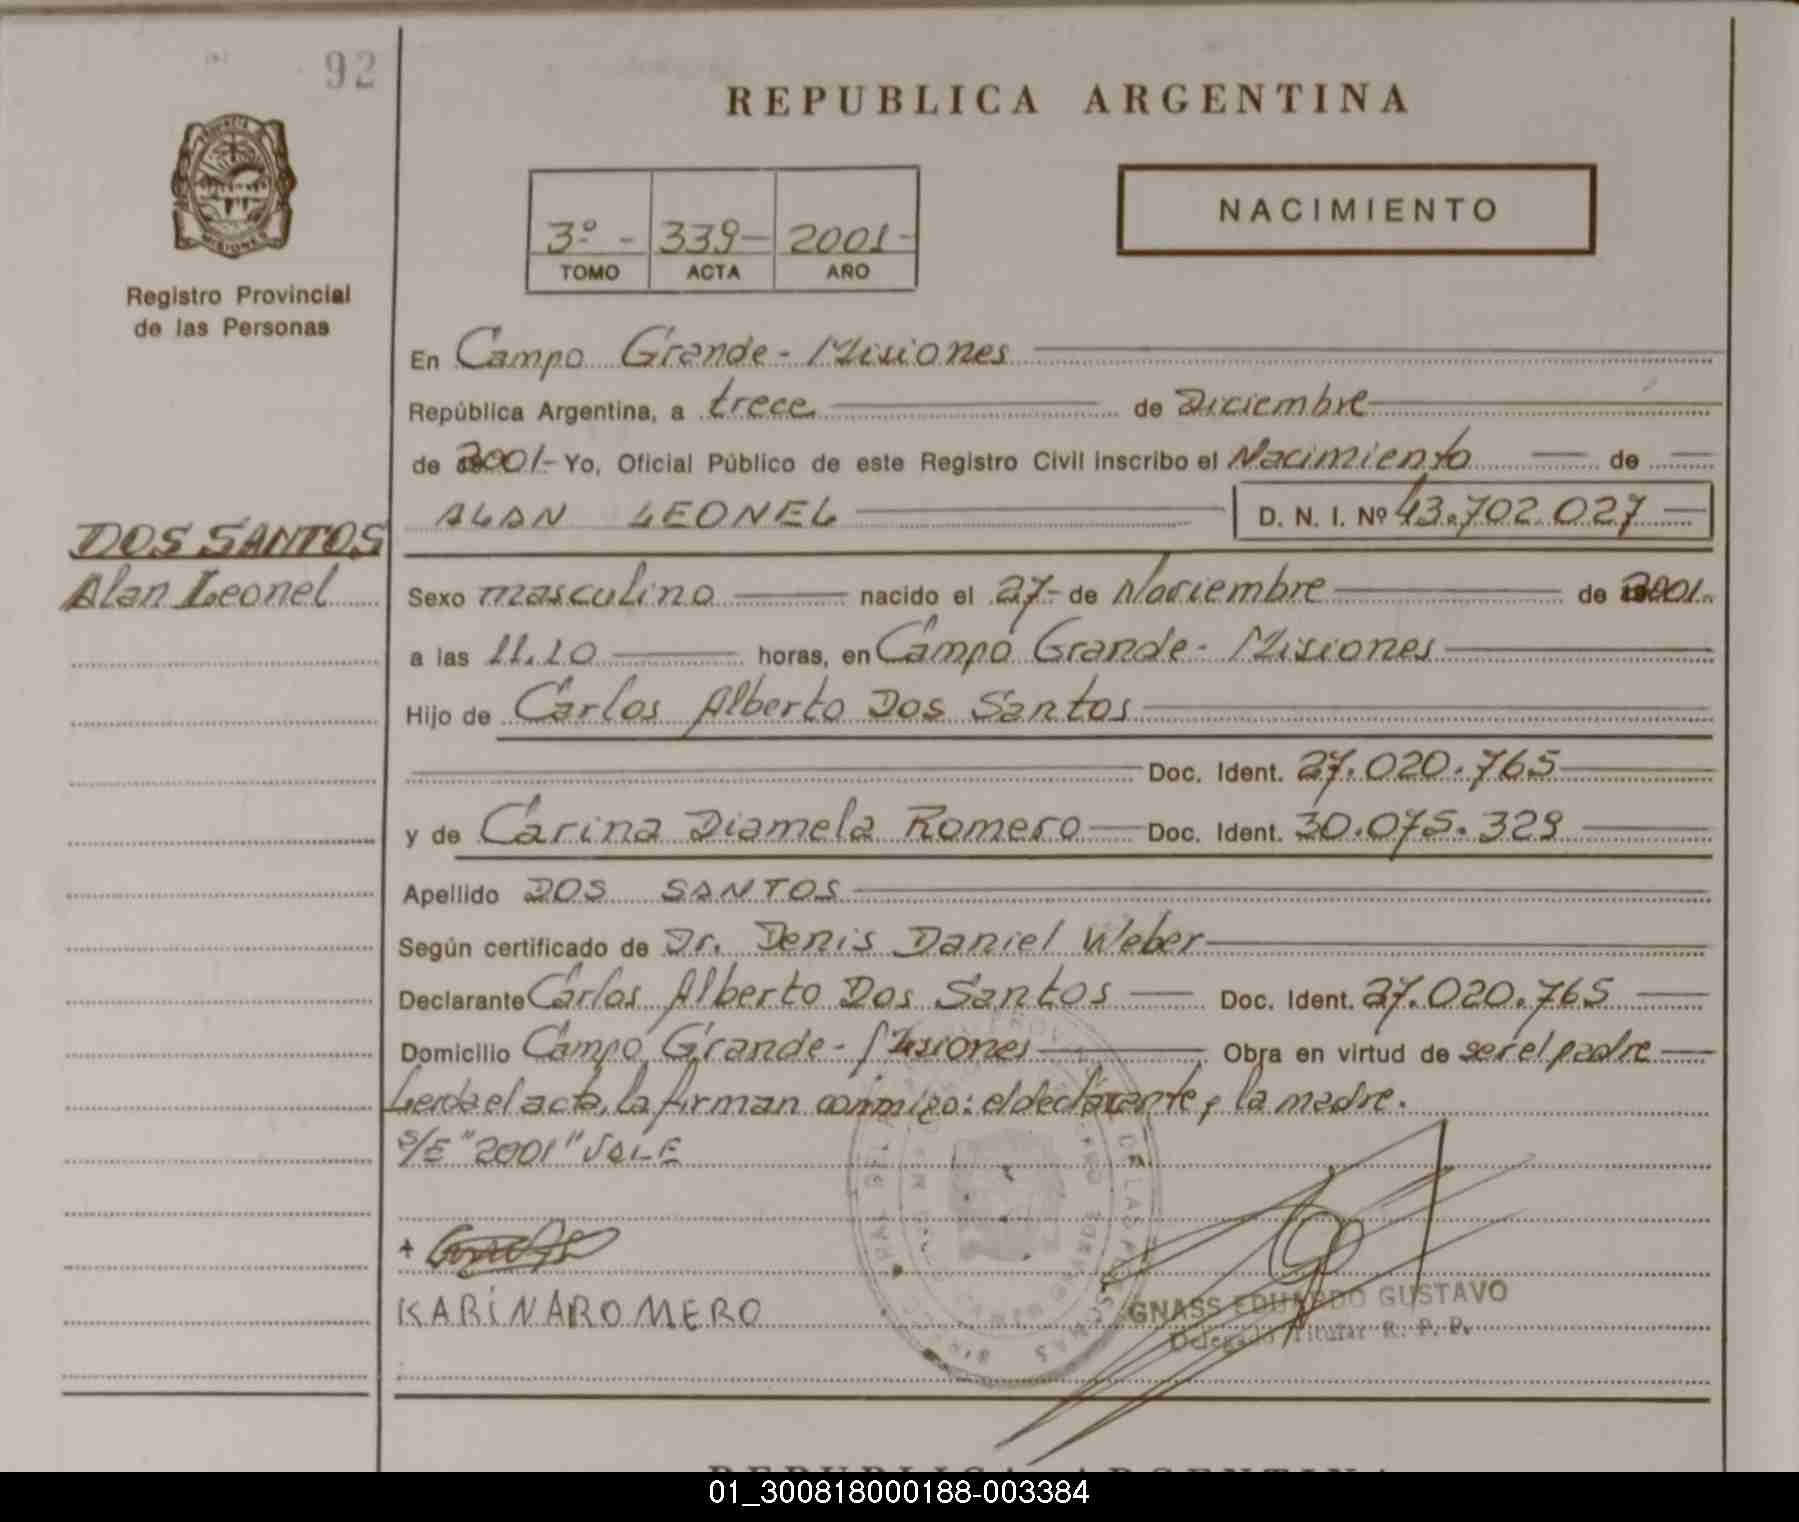 92
REPUBLICA ARGENTINA
3º - 339- 2001-
TOMO ACTA AÑO
NACIMIENTO
MISIONES
Registro Provincial
de las Personas
En Campo Grande - Misiones
República Argentina, a trece de Diciembre
de 2001- Yo, Oficial Público de este Registro Civil inscribo el Nacimiento de
ALAN LEONEL D. N. I. Nº 43.702.027
DOS SANTOS
Alan Leonel
Sexo masculino nacido el 27- de Noviembre de 2001.
a las 11.10 horas, en Campo Grande - Misiones
Hijo de Carlos Alberto Dos Santos
Doc. Ident. 27.020.765
y de Carina Diamela Romero Doc. Ident. 30.075.329
Apellido DOS SANTOS
Según certificado de Dr. Denis Daniel Weber
Declarante Carlos Alberto Dos Santos Doc. Ident. 27.020.765
Domicilio Campo Grande - Misiones Obra en virtud de ser el padre
Leida el acta, la firman conmigo: el declarante y la madre.
S/E "2001" VALE
KARINA ROMERO
GNASS EDUARDO GUSTAVO
Delegado Titular R. P. P.
REPUBLICA ARGENTINA
01_300818000188-003384